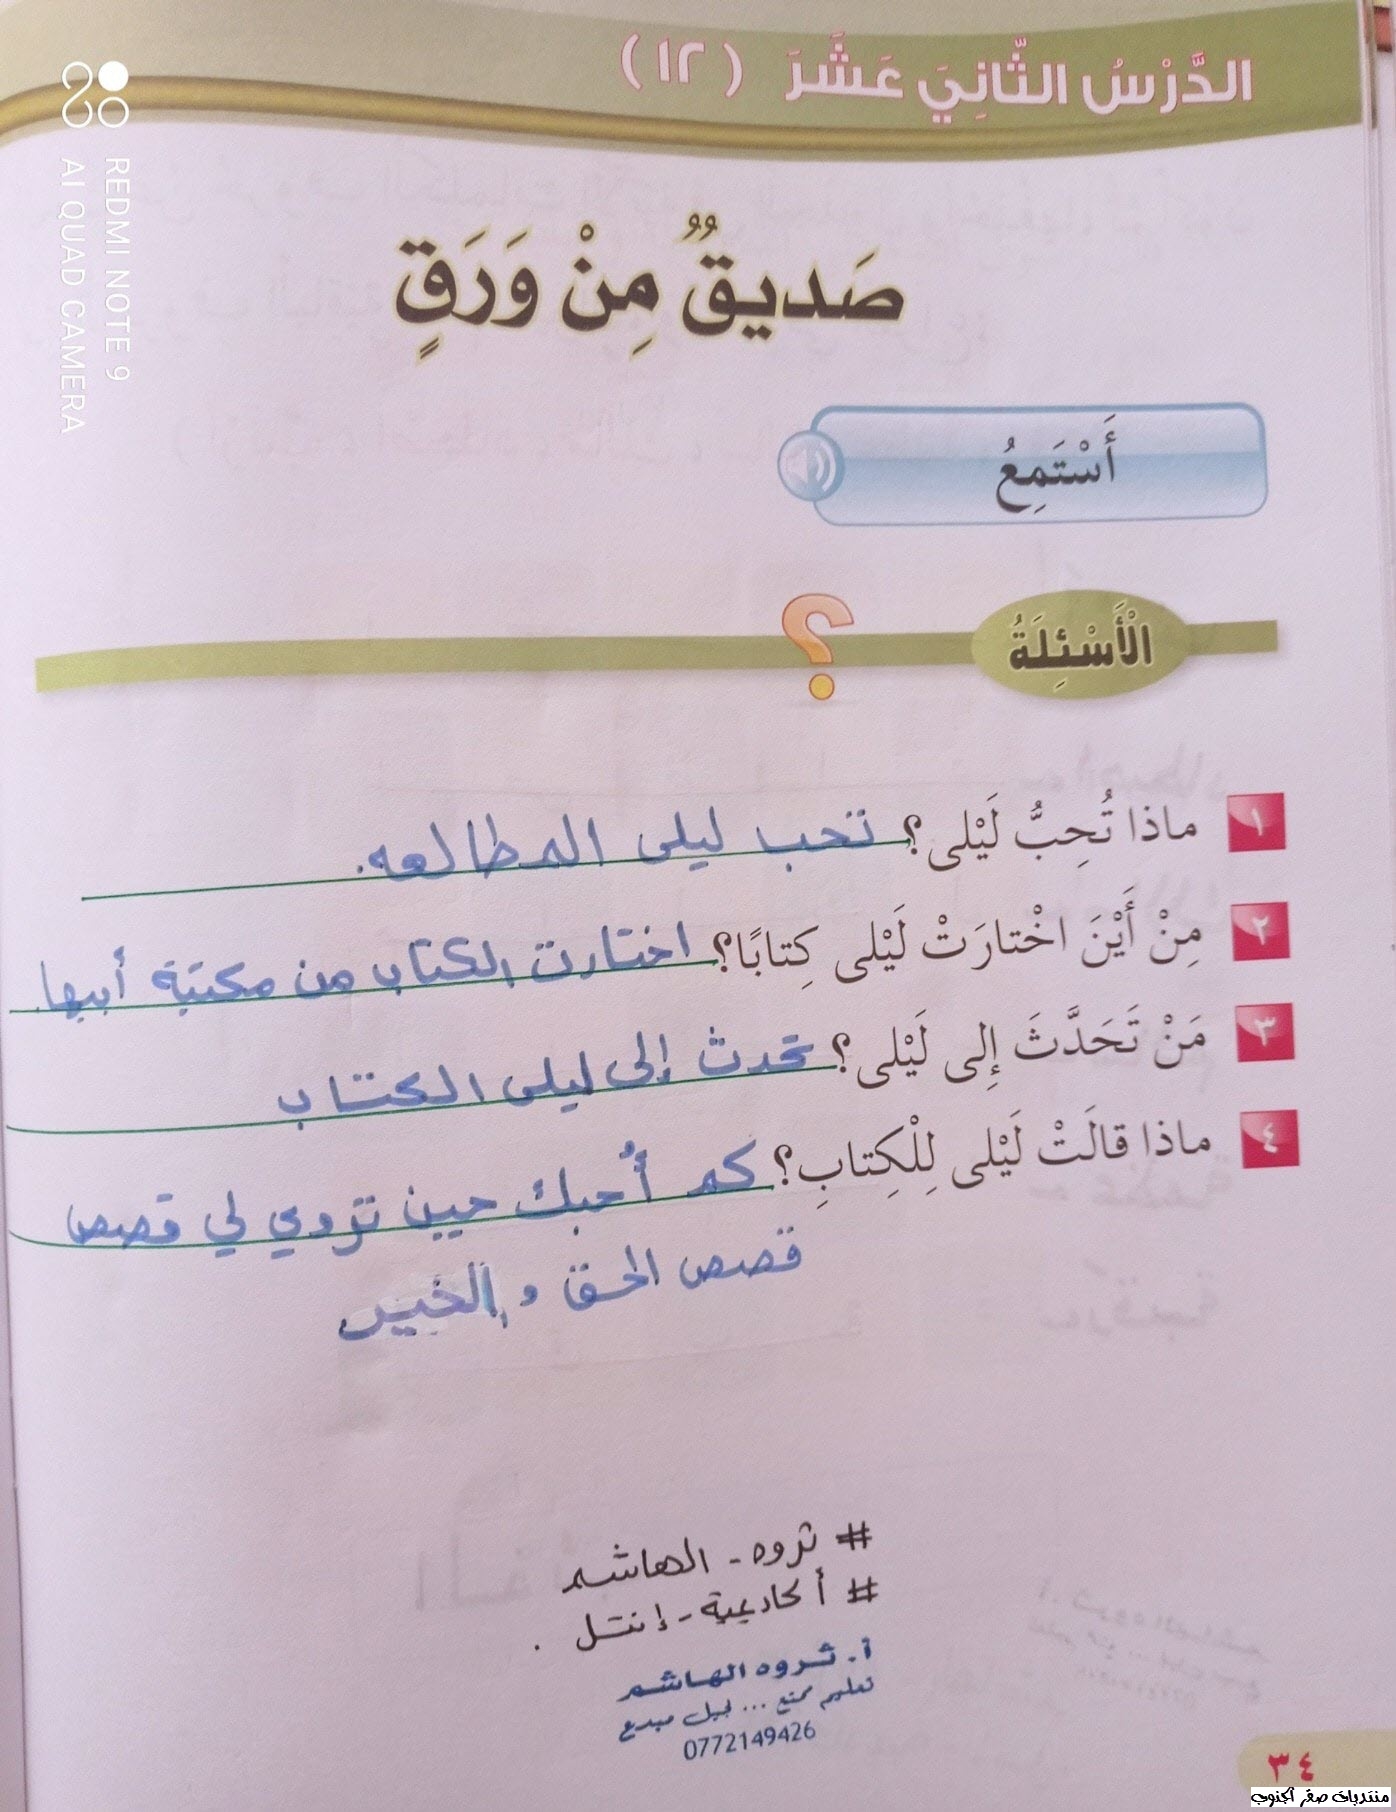 الدَّرْسُ الثَّانِيَ عَشَرَ (١٢)
REDMI NOTE 9
AI QUAD CAMERA
صَديقٌ مِنْ وَرَقٍ
أَسْتَمِعُ
الْأَسْئِلَةُ
؟
١ ماذا تُحِبُّ لَيْلى؟ تحب ليلى المطالعه.
٢ مِنْ أَيْنَ اخْتارَتْ لَيْلى كِتابًا؟ اختارت الكتاب من مكتبة أبيها.
٣ مَنْ تَحَدَّثَ إِلى لَيْلى؟ تحدث إلى ليلى الكتاب
٤ ماذا قالَتْ لَيْلى لِلْكِتابِ؟ كم أُحبك حين تروي لي قصص
قصص الحق و الخير
# ثروه - الهاشم
# أكاديمية - إنتل .
أ. ثروه الهاشم
تعليم ممتع ... جيل مبدع
0772149426
٣٤
منتديات صقر الجنوب